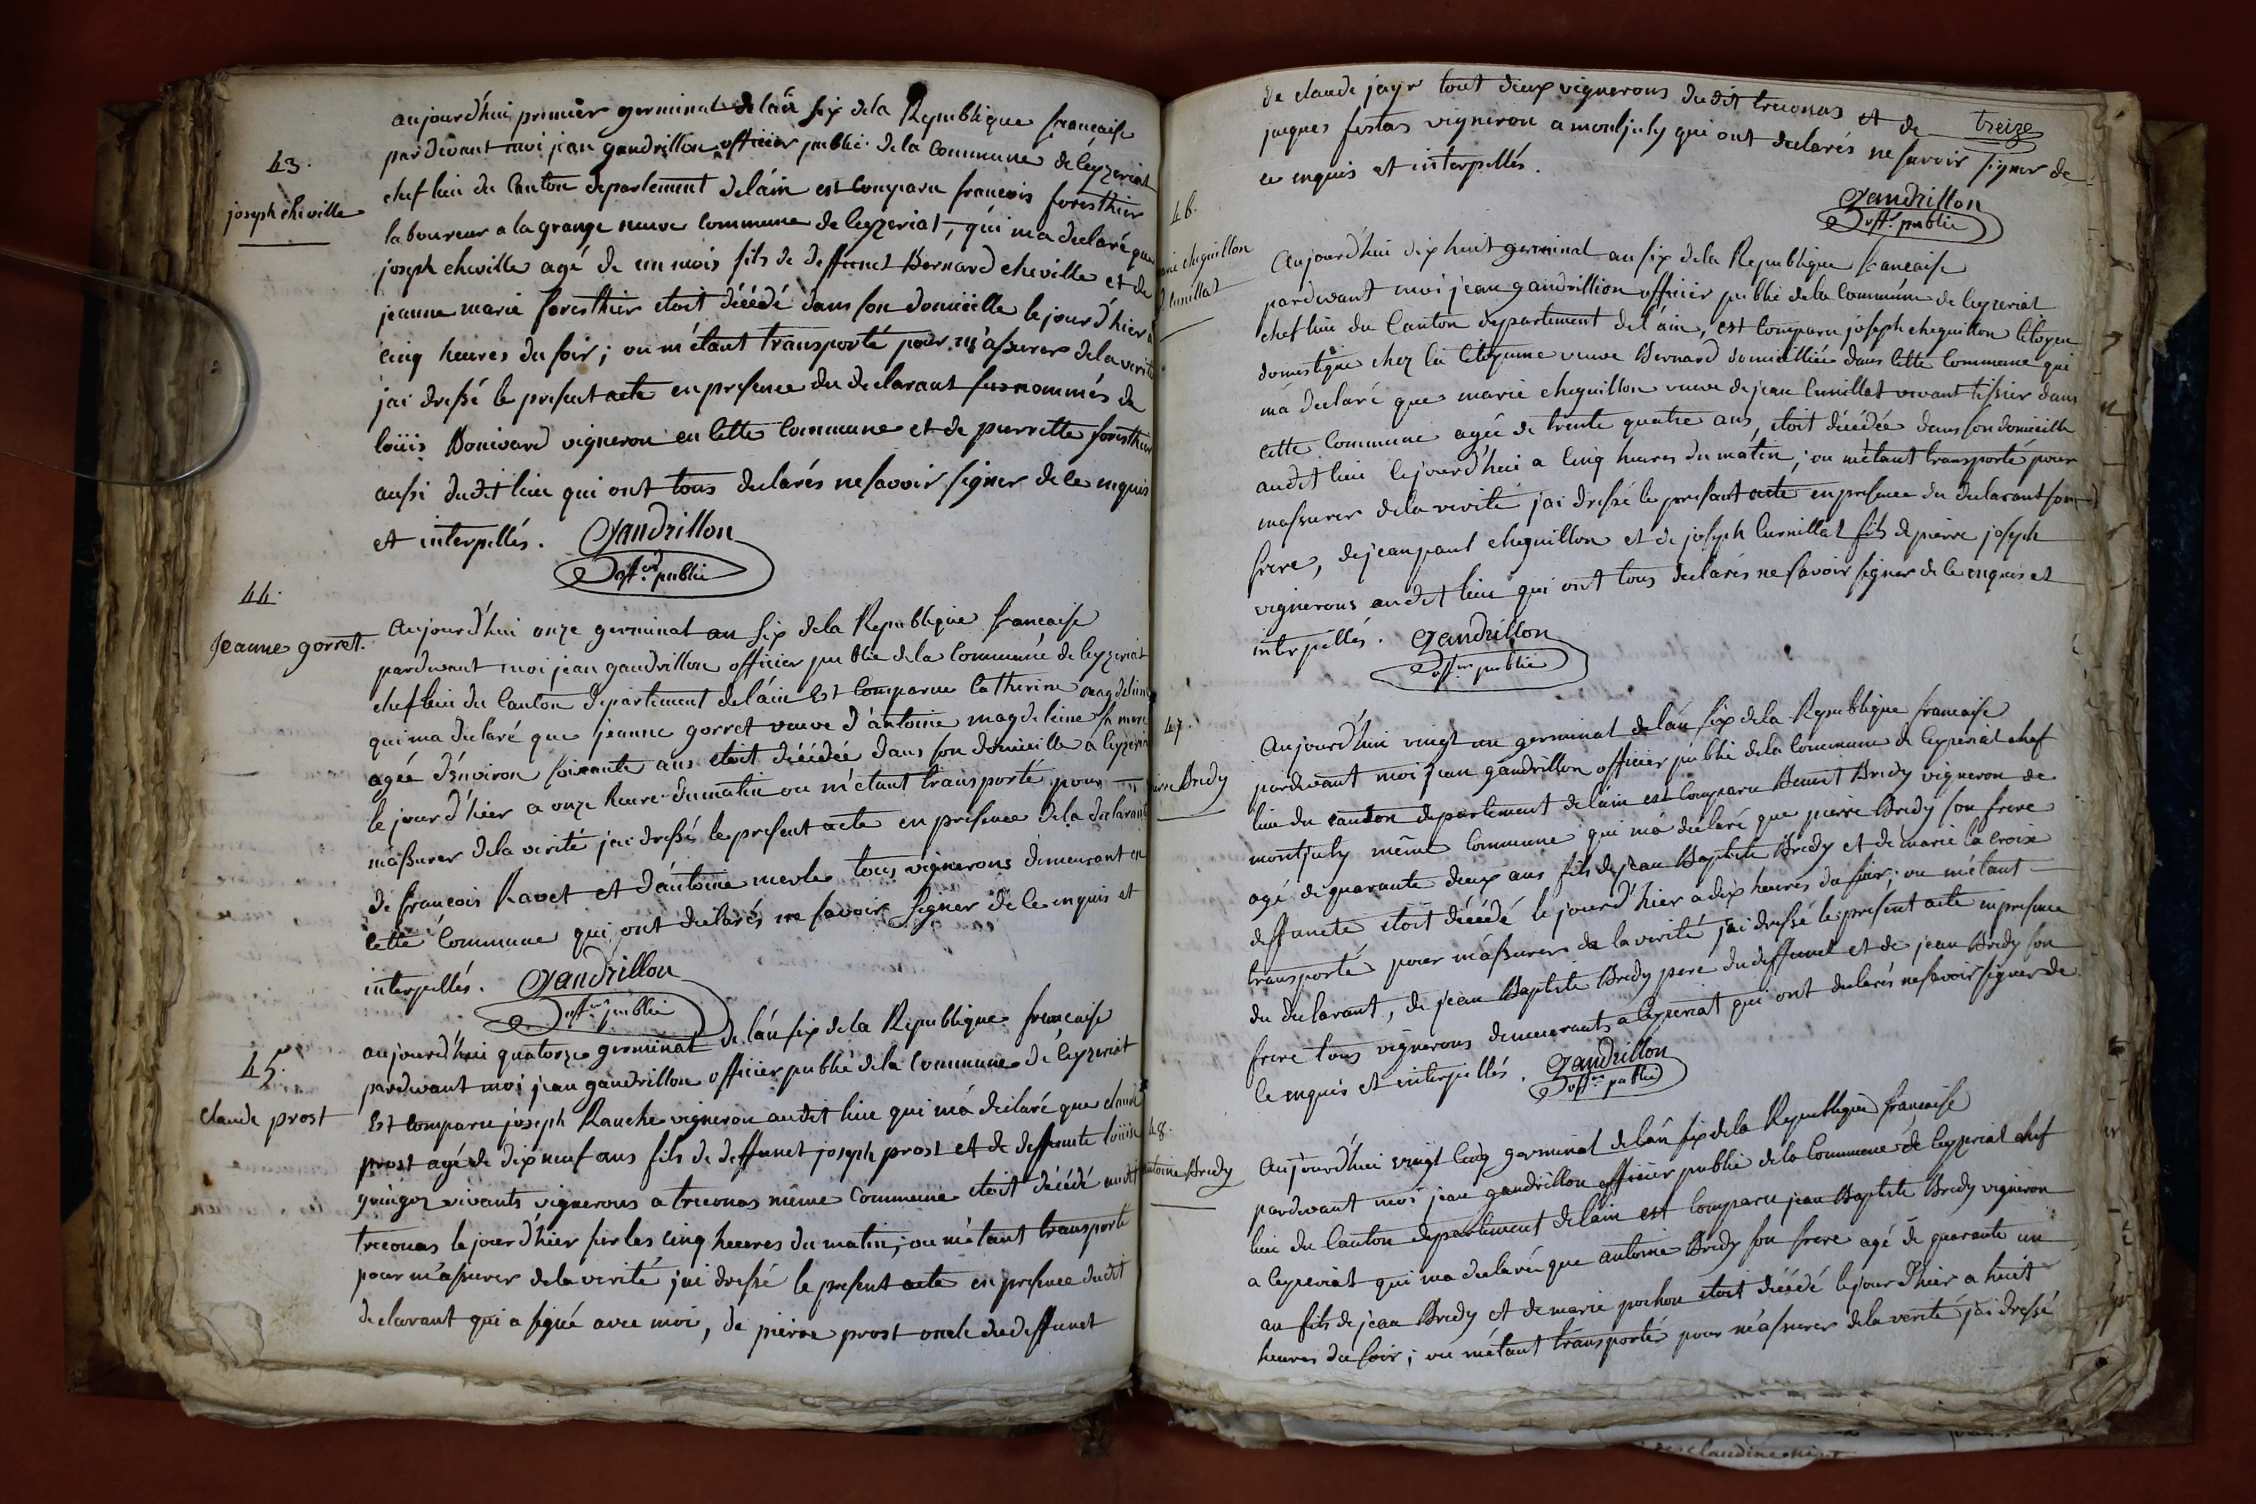 43.
joseph cheville
aujourd'hui premier germinal de lán six de la Republique francaise
pardevant moi jean gandrillon officier public de la commune de ceyzeriat
chef lieu du Canton departement de láin est comparu francois foresthier
laboureur a la grange neuve commune de ceyzeriat, qui ma declaré que
joseph cheville agé de un mois fils de deffunct Bernard cheville et de
jeanne marie foresthier etoit décédé dans son domicille le jour d'hier a
cinq heures du soir ; ou m'étant transporté pour m'assurer de la verité
jai dressé le present acte en presence du declarant susnommés de
loüis Bonivard vigneron en cette Commune et de pierrette foresthier
aussi dudit lieu qui ont tous declarés ne savoir signer de ce enquis
et interpellés. Gandrillon
off.er public
44.
Jeanne gorret.
Aujourd'hui onze germinal an six de la Republique francaise
pardevant moi jean gandrillon officier public de la commune de ceyzeriat
chef lieu du Canton departement de láin Est Comparue Catherine magdeleine
qui ma declaré que jeanne gorret veuve d'antoine magdeleine sa mere
agée d'environ soixante ans etoit décédée dans son domicille à ceyzeriat
le jour d'hier a onze heure du matin ou m'étant transporté pour
massurer de la verité jai dressé le present acte en presence de la declarante
de francois Ravet et d'antoine merle tous vignerons demeurant en
cette Commune qui ont declarés ne savoir signer de ce enquis et
interpellés. Gandrillon
off.er public
45.
claude prost
aujourd'hui quatorze germinal de lán six de la Republique francaise
pardevant moi jean gandrillon officier public de la Commune de Ceyzeriat
Est comparu joseph Rauche vigneron audit lieu qui má declaré que claude
prost agé de dix neuf ans fils de deffunct joseph prost et de deffuncte loüise
guingoz vivants vignerons a treconas même Commune etoit décédé audit
treconas le jour d'hier sur les cinq heures du matin ; ou m'étant transporté
pour m'assurer de la verité jai dressé le present acte en presence dudit
declarant qui a signé avec moi, de pierre prost oncle du deffunct
de claude jayr tout deux vignerons dudit treconas et de treize
jacques festas vigneron a montjuly qui ont declarés ne savoir signer de
ce enquis et interpellés.
Gandrillon
off.r public
46.
chequillon
Aujourd'hui dix huit germinal an six de la Republique francaise
pardevant moi jean gandrillion officier public de la Commune de ceyzeriat
chef lieu du Canton departement de l'áin, est comparu joseph chequillon Citoyen
domestique chez la Citoyenne veuve Bernard domicilliée dans cette Commune qui
má declaré que marie chequillon veuve de jean Cunillat vivant tissier dans
cette Commune agée de trente quatre ans, etoit décédée dans son domicille
audit lieu lejourd'hui a cinq heures du mátin ; ou m'étant transporté pour
massurer de la verité jai dressé le present acte en presence du declarant son
frere, de jean paul chequillon et de joseph Curnillat fils de pierre joseph
vignerons audit lieu qui ont tous declarés ne savoir signer de ce enquis et
interpellés. Gandrillon
off.er public
47.
Bredy
Aujourd'hui vingt un germinal de lán six de la Republique francaise
pardevant moi jean gandrillon officier public de la Commune de Ceyzeriat chef
lieu du canton departement de láin est Comparu Benoit Bredy vigneron de
montjuly même Commune qui má declaré que pierre Bredy son frere
agé de quarante deux ans fils de jean Baptiste Bredy et de marie la croix
deffuncte etoit décédé le jour d'hier a dix heures du soir ; ou m'étant
transporté pour m'assurer de la verité jai dressé le present acte en presence
du declarant, de jean Baptiste Bredy pere du deffunct et de jean Bredy son
frere tous vignerons demeurants a Ceyzeriat qui ont declarés ne savoir signer de
ce enquis et interpellés. Gandrillon
off.er public
48.
antoine Bredy
Aujourd'hui vingt cinq germinal de lán six de la Republique francaise
pardevant moi jean gandrillon officier public de la Commune de Ceyzeriat chef
lieu du Canton departement de láin est Comparu jean Baptiste Bredy vigneron
a Ceyzeriat qui ma declaré que antoine Bredy son frere agé de quarante un
an fils de jean Bredy et de marie pochon etoit décédé le jour d'hier a huit
heures du soir ; ou m'étant transporté pour m'assurer de la verité jai dressé